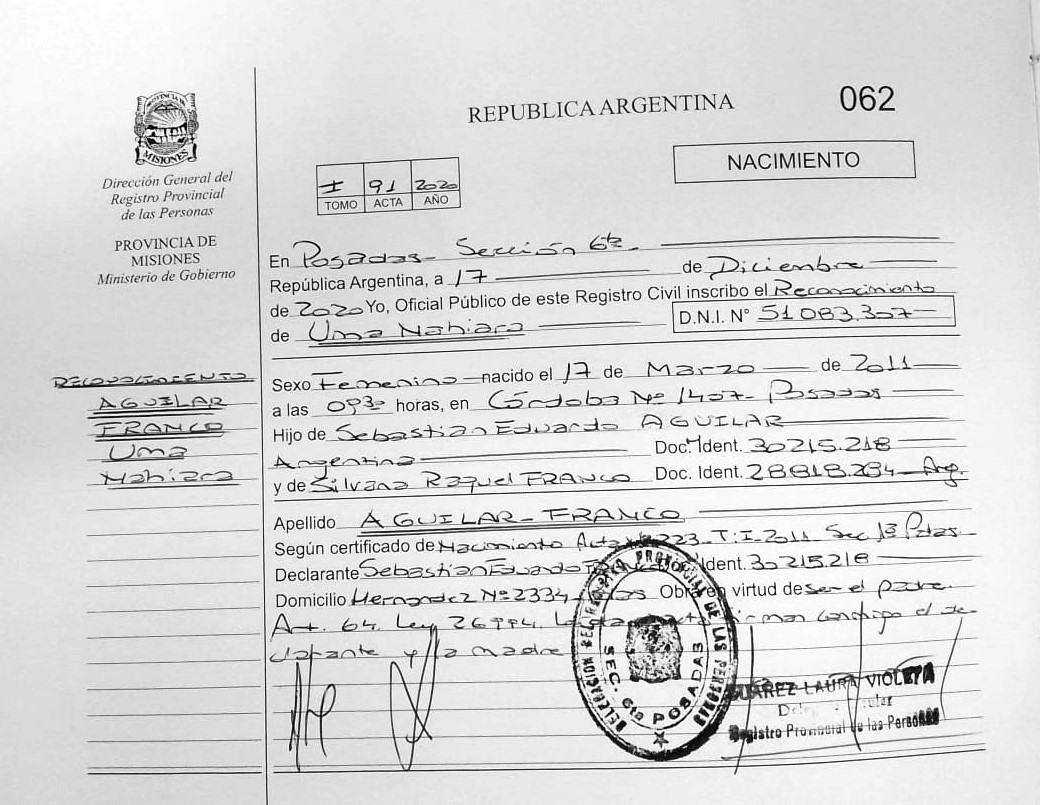 062
REPUBLICA ARGENTINA
NACIMIENTO
PROVINCIA DE
MISIONES
Dirección General del
Registro Provincial
de las Personas
PROVINCIA DE
MISIONES
Ministerio de Gobierno
I 91 2020
TOMO ACTA AÑO
En Posadas - Sección 6ta
República Argentina, a 17 de Diciembre
de 2020 Yo, Oficial Público de este Registro Civil inscribo el Reconocimiento
de Uma Nahiara D.N.I. N° 51083.307
RECONOCIMIENTO
AGUILAR
FRANCO
Uma
Nahiara
Sexo Femenino nacido el 17 de Marzo de 2011
a las 0930 horas, en Córdoba Nº 1407- Posadas
Hijo de Sebastian Eduardo AGUILAR
Argentina Doc. Ident. 30215.218
y de Silvana Raquel FRANCO Doc. Ident. 28818.284 Arg.
Apellido AGUILAR - FRANCO
Según certificado de Nacimiento Acta 223 T:I. 2011 Sec 1ª Pdas
Declarante Sebastian Eduardo Ident. 30215.218
Domicilio Hernandez Nº 2334 Obra en virtud de ser el padre
Art. 64. Ley 26994. conmigo el de
clarante y la madre
DELEGACION DEL REGISTRO PROVINCIAL DE LAS PERSONAS
SEC. 6ta POSADAS
SUAREZ LAURA VIOLETA
Registro Provincial de las Personas